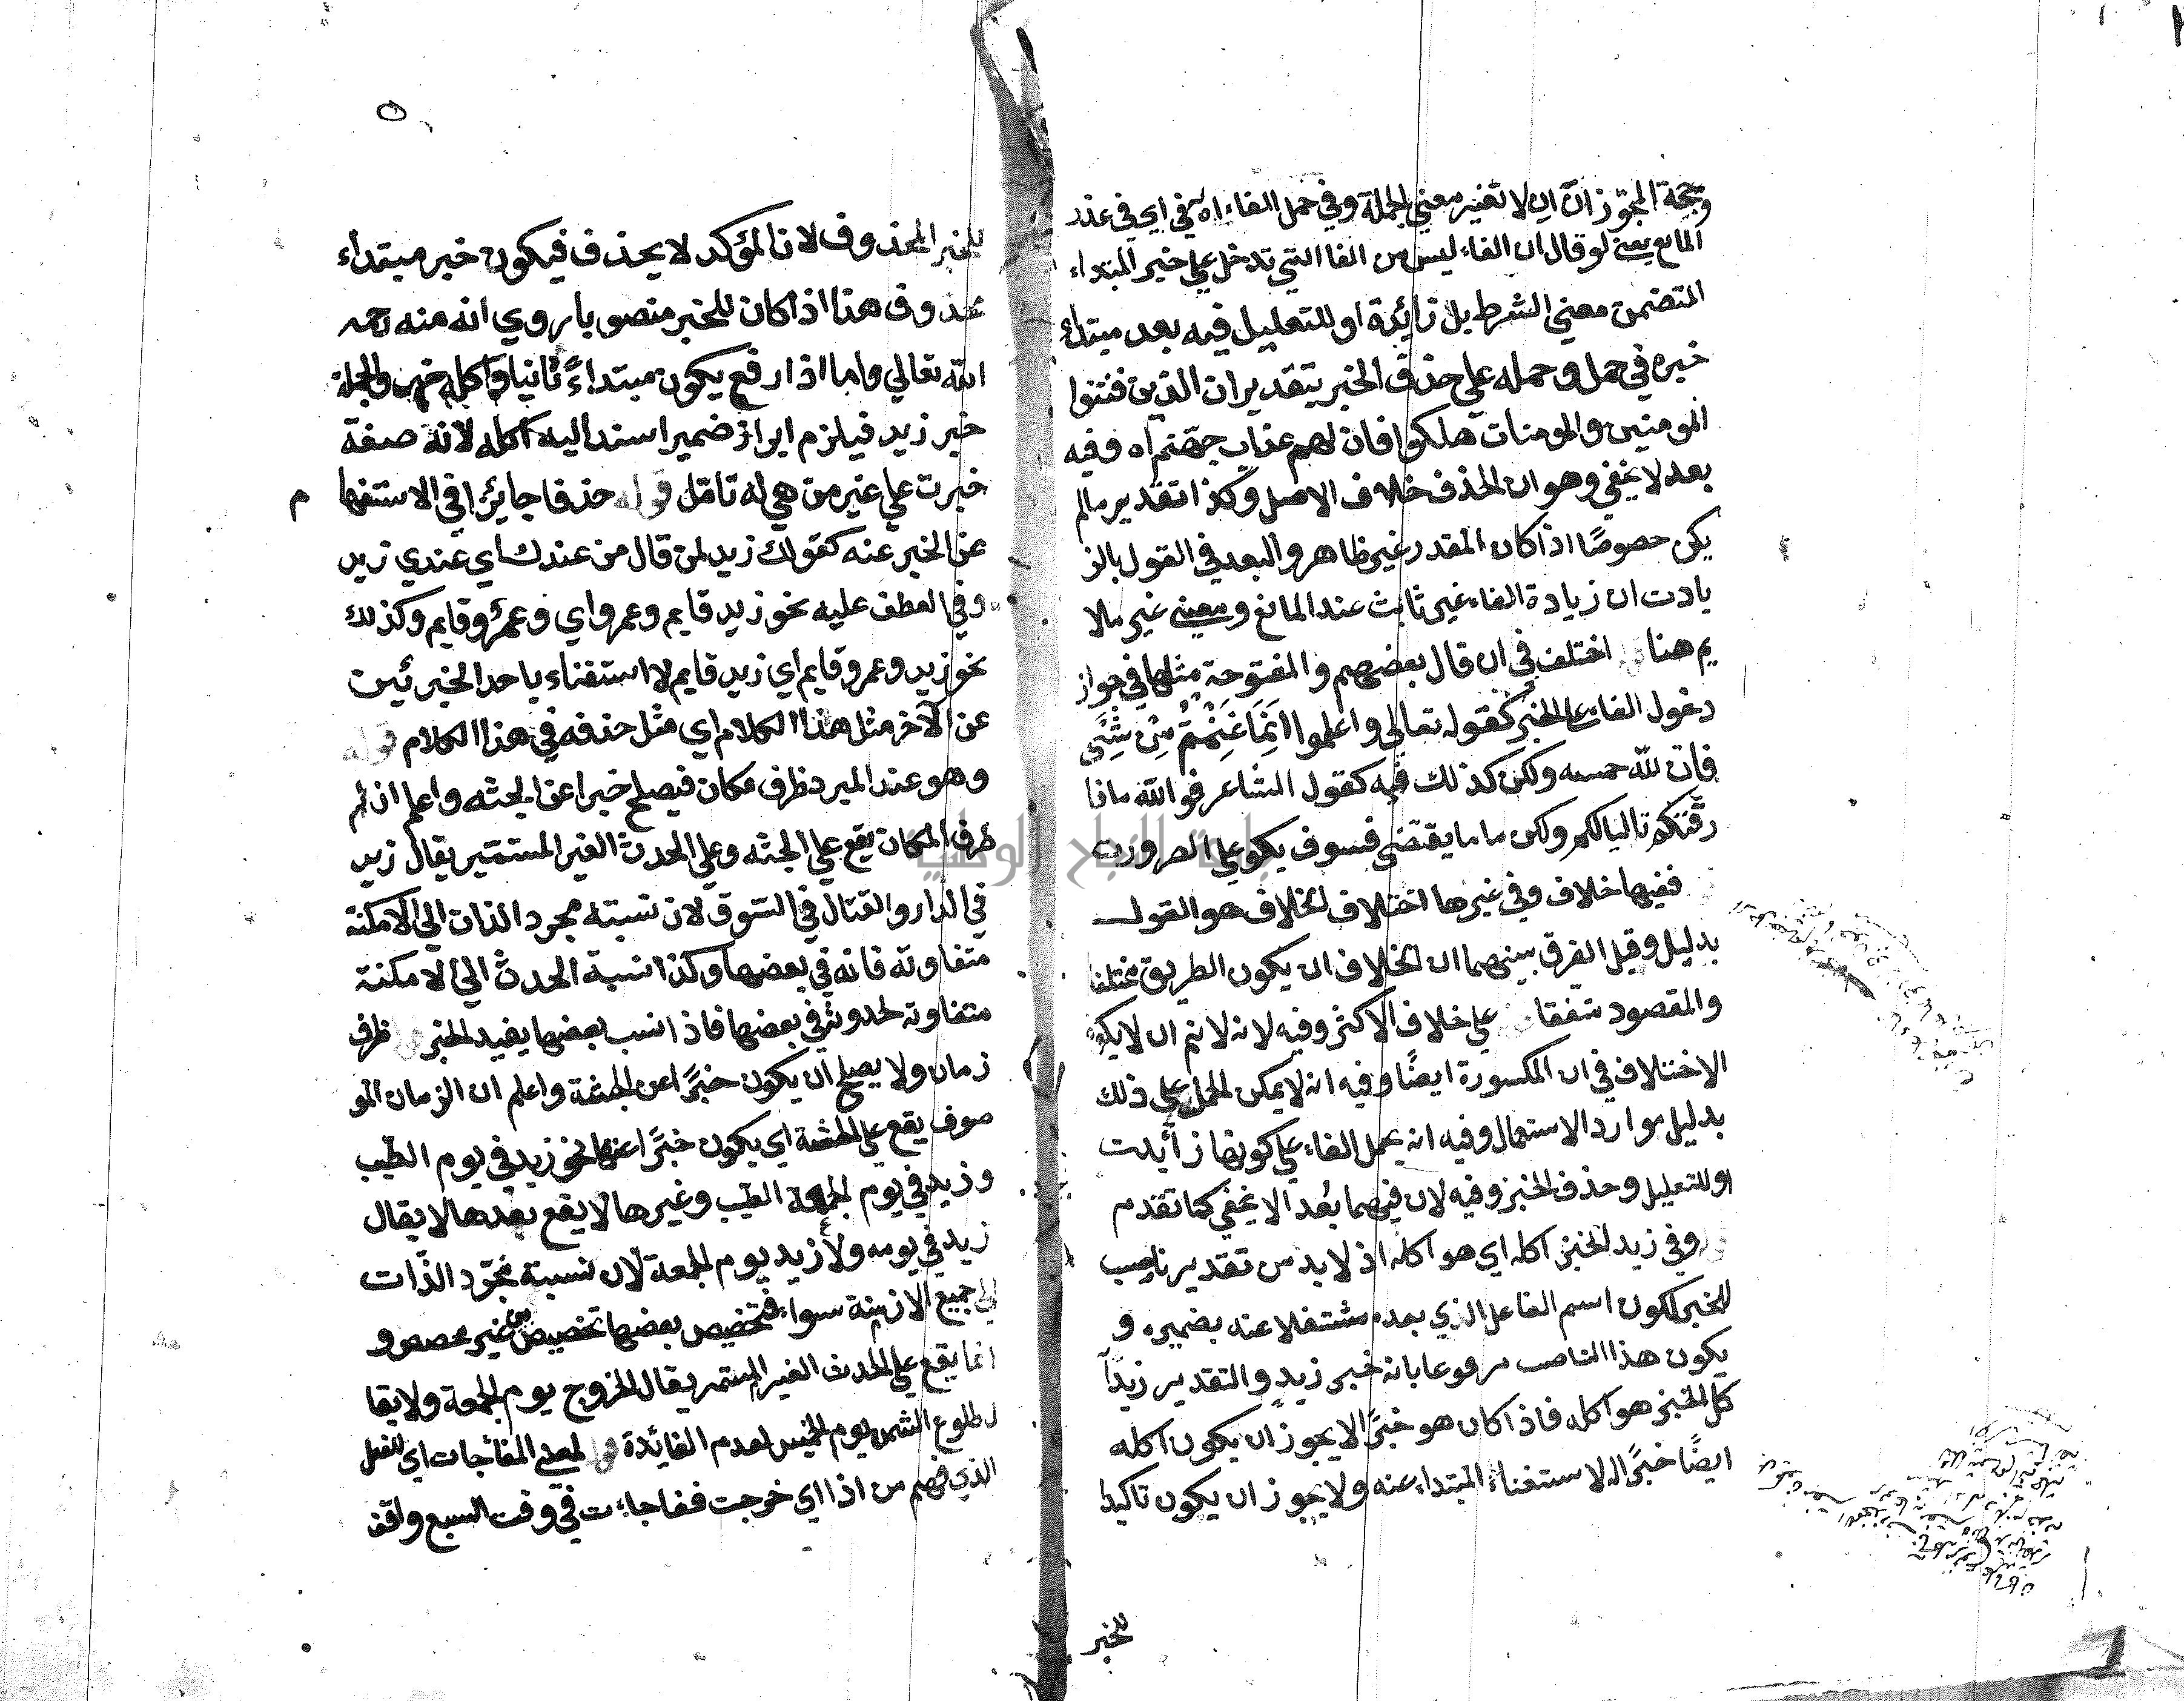 وحجة المجوز ان ان لا تغير معني الجملة وفي حمل الفاء اه في اي في عند
المانع يعني لو قال ان الفاء ليس من الفا التي تدخل علي خبر المبتداء
المتضمن معني الشرط بل زائدة او للتعليل فيه بعد مبتداء
خبره في حمل وحمله علي حذف الخبر بتقدير ان الذين فتنوا
المومنين والمومنات هلكوا فان لهم عذاب جهنم اه وفيه
بعد لا يخفي وهو ان الحذف خلاف الاصل وكذا تقدير مالم
يكن خصوصًا اذا كان المقدر غير ظاهر والبعد في القول بالز
يادت ان زيادة الفاء غير ثابت عند المانع ومعني غير ملا
يم هنا اختلف في ان قال بعضهم والمفتوحة مثلها في جواز
دخول الفاء علي الخبر كقوله تعالي واعلموا انَّمَا غَنِمْتُمْ مِنْ شَئٍ
فان لله خمسه ولكن كذلك فيه كقول الشاعر فوالله ما فا
رقتكم تاليا لكم ولكن ما ما يقتضي فسوف يكو علي الضرورت
ففيها خلاف وفي غيرها اختلاف الخلاف هو القول
بدليل وقيل الفرق بينهما ان الخلاف ان يكون الطريق مختلفا
والمقصود متفقا علي خلاف الاكثر وفيه لانه لا نم ان لا يكون
الاختلاف في ان المكسورة ايضًا وفيه انه لا يمكن الحمل علي ذلك
بدليل موارد الاستعمال وفيه انه يحمل الفاء علي كونها زائدت
او للتعليل وحذف الخبر وفيه لان فيهما بُعد الا يخفي كما تقدم
وفي زيد الخبز اكله اي هو اكله اذ لا بد من تقدير ناصب
للخبز لكون اسم الفاعل الذي بعده مشتغلا عنه بضميره و
يكون هذا الناصب مرفوعا بانه خبر زيد والتقدير زيد آ
كل الخبز هو اكله فاذا كان هو خبرًا لا يجوز ان يكون اكله
ايضًا خبرًا له لاستغناء المبتداء عنه ولا يجوز ان يكون تاكيدا
للخبر
٥
للخبر المحذوف لان المؤكد لا يحذف فيكون خبر مبتداء
محذوف هذا اذا كان للخبر منصوبا روي انه منه رحمه
الله تعالي واما اذا رفع يكون مبتداءً ثانيا و اكله خبره والجملة
خبر زيد فيلزم ابراز ضمير اسند اليه اكله لانه صفة
خبرت علي غير من هي له تامّل قوله حذفا جايزا في الاستفها م
عن الخبر عنه كقولك زيد لمن قال من عندك اي عندي زيد
وفي العطف عليه نحو زيد قايم وعمرو اي وعمرٌو قايم وكذلك
نحو زيد وعمرو قايم اي زيد قايم لا استغناء باحد الخبرئين
عن الآخر مثل هذا الكلام اي مثل حذفه في هذا الكلام قوله
وهو عند المبرد ظرف مكان فيصلح خبرا عن الجثه واعلم ان
ظرف المكان يقع علي الجثه وعلي الحدث الغير المستمتير يقال زيد
في الدار والقتال في السّوق لان نسبته مجرد الذات الي الامكنة
متفاوته فانه في بعضها وكذا نسبة الحدث الي الامكنة
متفاوته لحدوثه في بعضها فاذا نسب بعضها يفيد الخبر ظرف
زمان ولا يصلح ان يكون خبرًا عن الجثة واعلم ان الزمان المو
صوف يقع علي الجثة اي يكون خبرًا عنها نحو زيد في يوم الطيب
وزيد في يوم الجمعة الطيب وغيرها لا يقع بعدها لا يقال
زيد في يومه ولا زيد يوم الجمعة لان نسبة مجرّد الذّات
الي جميع الازمنة سواء فتخصيص بعضها تخصيص من غير مخصص و
انما يقع علي الحدث الغير المستمر يقال الخروج يوم الجمعة ولا يقا
ل طلوع الشمس يوم الخميس لعدم الفائدة قوله لمعني المفائجات اي للفعل
الذي فهم من اذا اي خرجت ففاجاءت في وقت السبع واقف